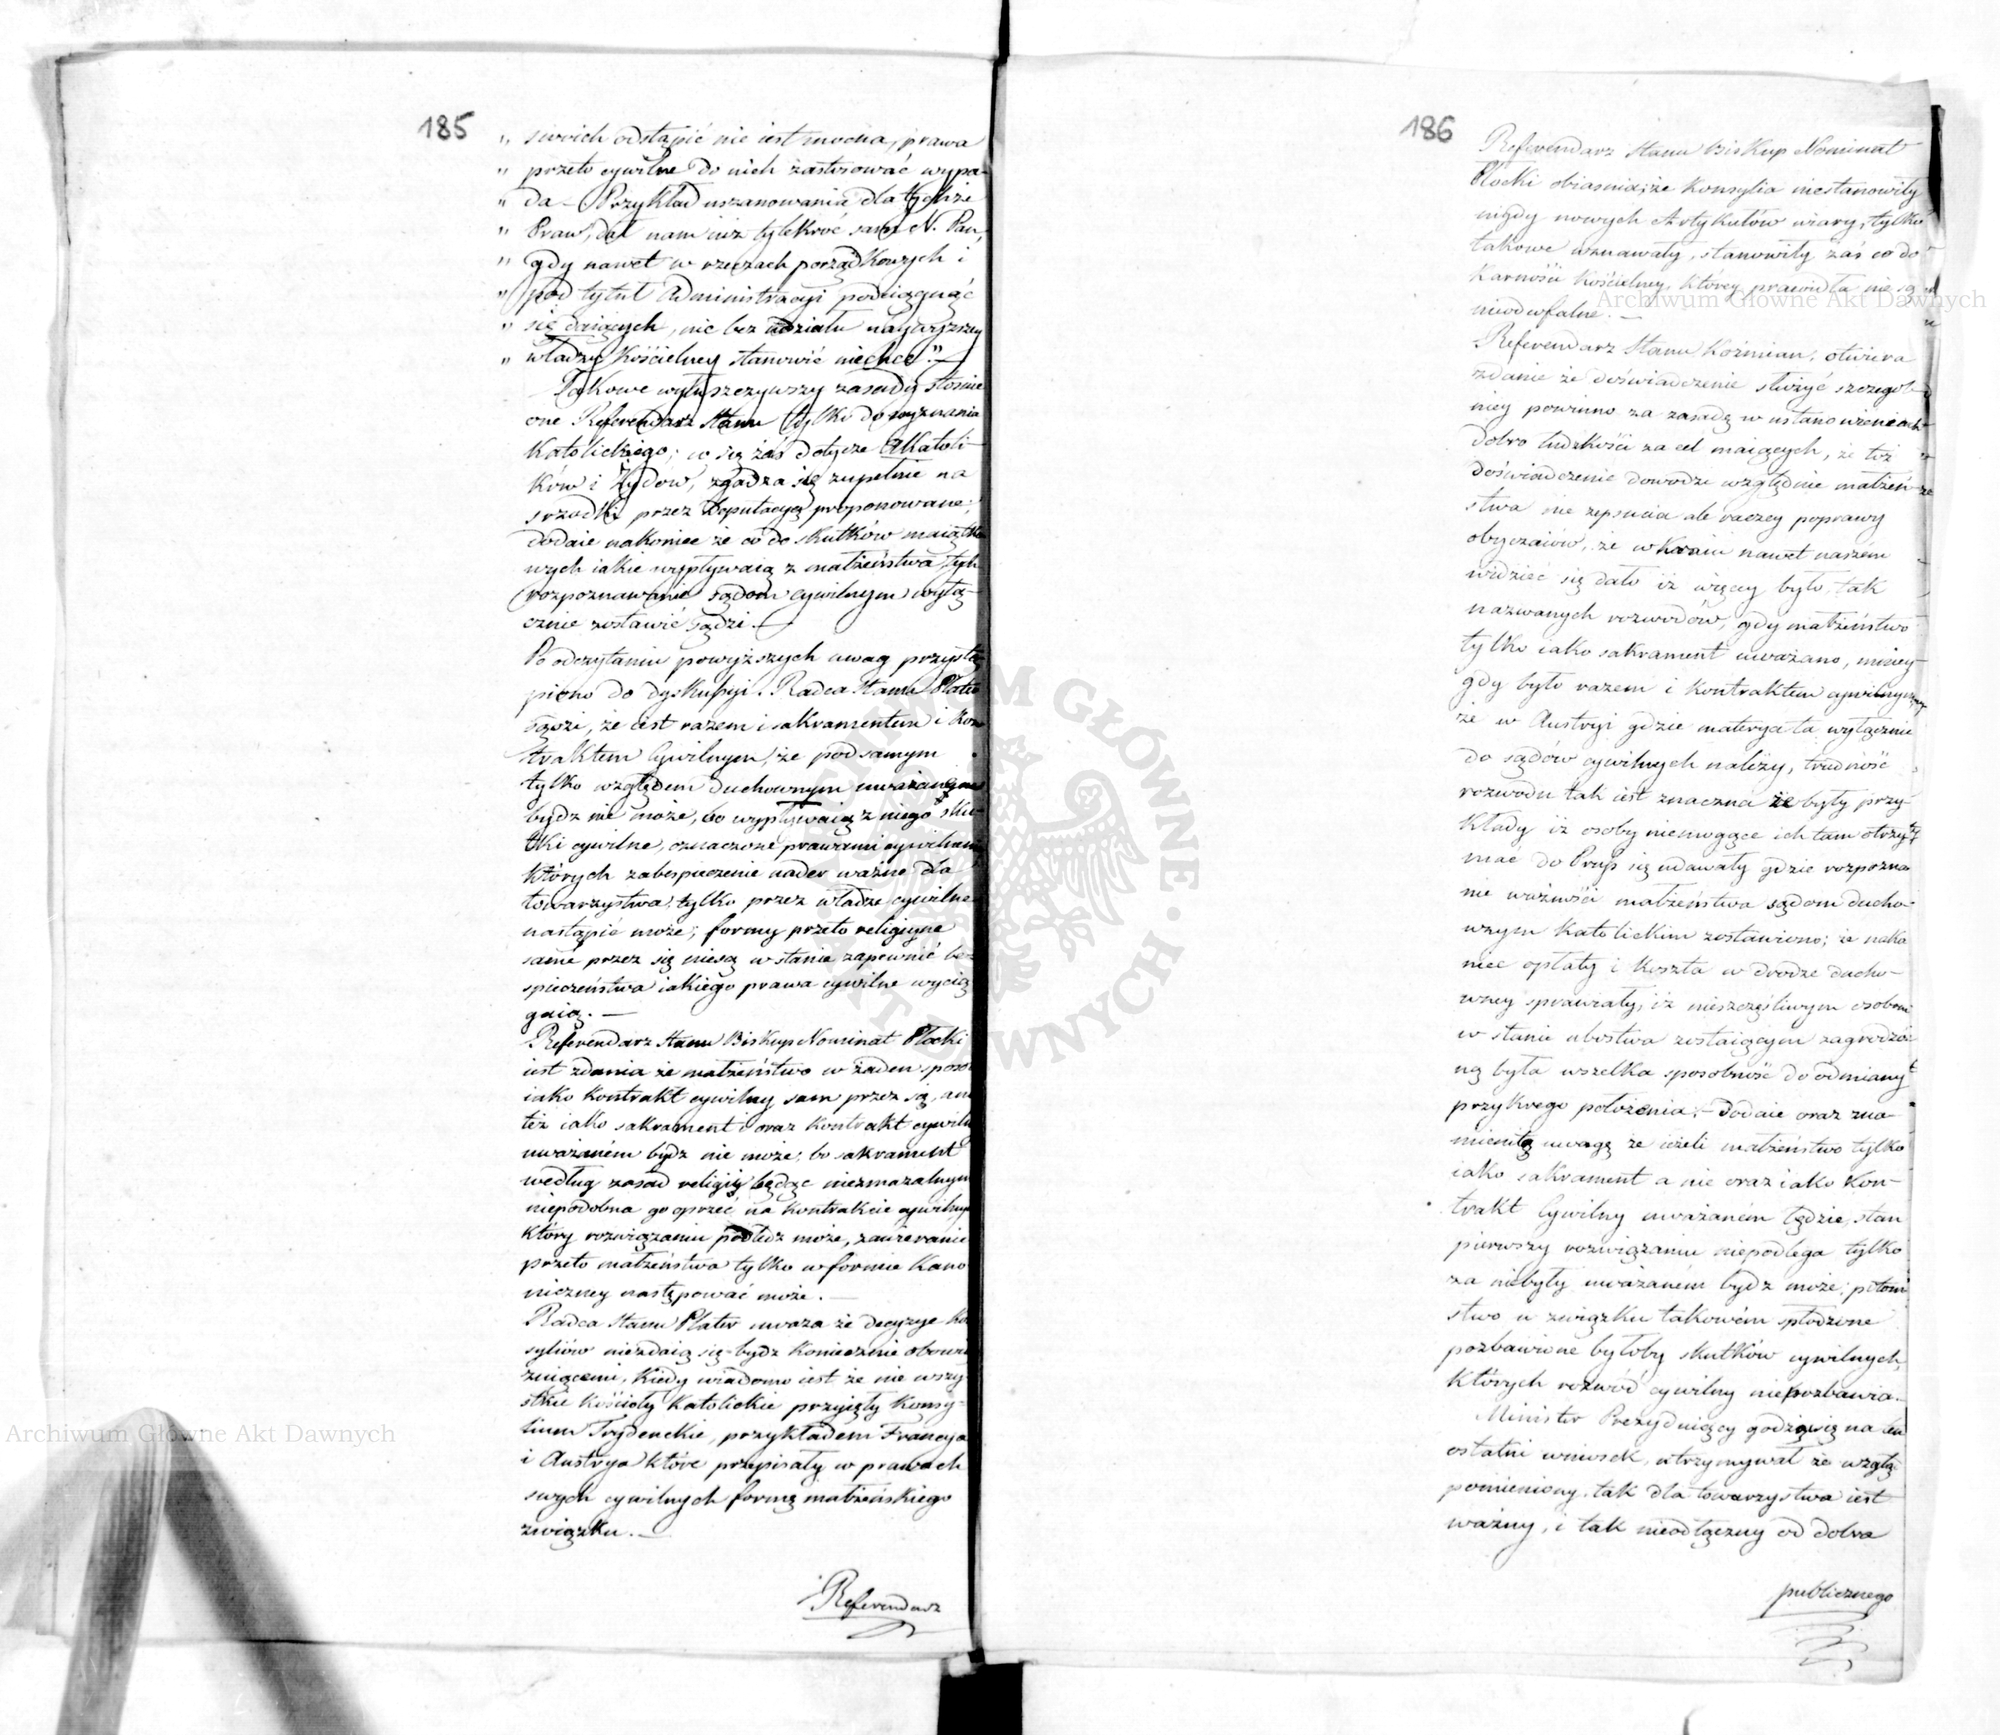 185
„ swoich odstąpić nie iest mocna, prawa
„ przeto cywilne do nich zastosować wypa-
„ da – Przykład uszanowania dla tychże
„ Praw, dał nam iuż tylekroć sam N. Pan,
„ gdy nawet w rzeczach porządkowych i
„ pod tytuł Administracyi podciągnąć
„ się daiących, nic bez udziału naywyższey
„ władzy Kościelney stanowić niechce." –
Takowe wyłuszczywszy zasady stosuie
one Referendarz Stanu tylko do wyznania
Katolickiego; co się zaś dotycze Akatoli-
ków i Żydów, zgadza się zupełnie na
srzodki przez Deputacyą proponowane;
dodaie nakoniec że co do skutków maiątko
wych iakie wypływaią z małżeństwa, tych
rozpoznawanie sądom cywilnym wyłą-
cznie zostawić sądzi. –
Po odczytaniu powyższych uwag przystą
piono do dyskussyi. Radca Stanu Plater
sądzi, że iest razem i sakramentem i Kon
traktem Cywilnym, że pod samym
tylko względem duchownym uważanem
bydz nie może, bo wypływaią z niego sku-
tki cywilne, oznaczone prawami cywilnemi
których zabespieczenie nader ważne dla
towarzystwa, tylko przez władze cywilne
nastąpić może; formy przeto religiyne
same przez się niesą w stanie zapewnić bez
spieczeństwa iakiego prawa cywilne wycią
gaią. –
Referendarz Stanu Biskup Nominat Płocki
iest zdania że małżeństwo w żaden sposob
iako Kontrakt cywilny sam przez się, ani
też iako sakrament i oraz Kontrakt cywilny
uważaném bydz nie może, bo sakrament
według zasad religii będąc niezmazalnym
niepodobna go oprzeć na Kontrakcie cywilnym
który rozwiązaniu podledz może, zawieranie
przeto małżeństwa tylko w formie Kano
niczney następować może. –
Radca Stanu Plater uważa że decyzye Kon
syliów niezdaią się bydz koniecznie obowią
zuiącemi, kiedy wiadomo iest że nie wszy-
stkie Kościoły Katolickie przyięły Konsy-
lium Trydenckie, przykładem Francya
i Austrya które przepisały w prawach
swych cywilnych formę małżeńskiego
związku. –
Referendarz
186
Referendarz Stanu Biskup Nominat
Płocki obiasnia; że Konsylia niestanowiły
nigdy nowych Artykułów wiary, tylko
takowe uznawały, stanowiły zaś co do
Karności Kościelney, którey prawidła nie są
nieodwołalne. –
Referendarz Stanu Koźmian, otwiera
zdanie że doświadczenie służyć szczegól-
niey powinno za zasadę w ustanowieniach
dobro ludzkości za cel maiących, że toż
doświadczenie dowodzi względnie małżeń-
stwa nie zepsucia ale raczey poprawy
obyczaiów, że w Kraiu nawet naszém
widzieć się dało iż więcey było, tak
nazwanych rozwodów, gdy małżeństwo
tylko iako sakrament uważano, mniey
gdy było razem i Kontraktem cywilnym
że w Austryi gdzie materya ta wyłącznie
do sądów cywilnych należy, trudność
rozwodu tak iest znaczna że były przy-
kłady iż osoby niemogące ich tam otrzy-
mać do Pruss się udawały gdzie rozpozna
nie ważności małżeństwa sądom ducho-
wnym Katolickim zostawiono; że nako
niec opłaty i Koszta w drodze ducho-
wney sprawiały, iż nieszczęśliwym osobom
w stanie ubostwa zostaiącym zagrodzo
ną była wszelka sposobność do odmiany
przykrego położenia. – Dodaie oraz zna-
mienitą uwagę że ieżeli małżeństwo tylko
iako sakrament a nie oraz iako Kon-
trakt Cywilny uważaném będzie, stan
pierwszy rozwiązaniu niepodlega tylko
za niebyły uważaném bydz może; potom
stwo w związku takowém spłodzone
pozbawione byłoby skutków cywilnych,
których rozwód cywilny niepozbawia. –
Minister Prezyduiący godząc się na ten
ostatni wniosek, utrzymywał że wzgląd
pomieniony, tak dla towarzystwa iest
ważny, i tak nieodłączny od dobra
publicznego
Archiwum Główne Akt Dawnych
Archiwum Główne Akt Dawnych
ARCHIWUM GŁÓWNE AKT DAWNYCH